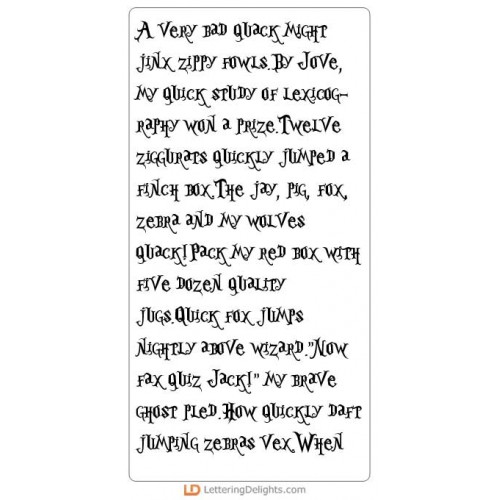 A very bad quack might
jinx zippy fowls.By Jove,
my quick study of lexicog-
raphy won a prize.Twelve
ziggurats quickly jumped a
finch box.The jay, pig, fox,
zebra and my wolves
quack!Pack my red box with
five dozen quality
jugs.Quick fox jumps
nightly above wizard."Now
fax quiz Jack!" my brave
ghost pled.How quickly daft
jumping zebras vex.When
LD LetteringDelights.com